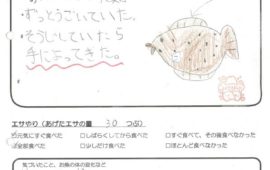 ・ずっとうごいていた。
そうじしていたら
手にきってきた。
エサやり(あげたエサの量 30 つぶ)
☑元気にすぐ食べた □しばらくしてから食べた □すぐ食べて、その後食べなかった
☑全部食べた □少しだけ食べた □ほとんど食べなかった
気づいたこと、お魚の体の変化など